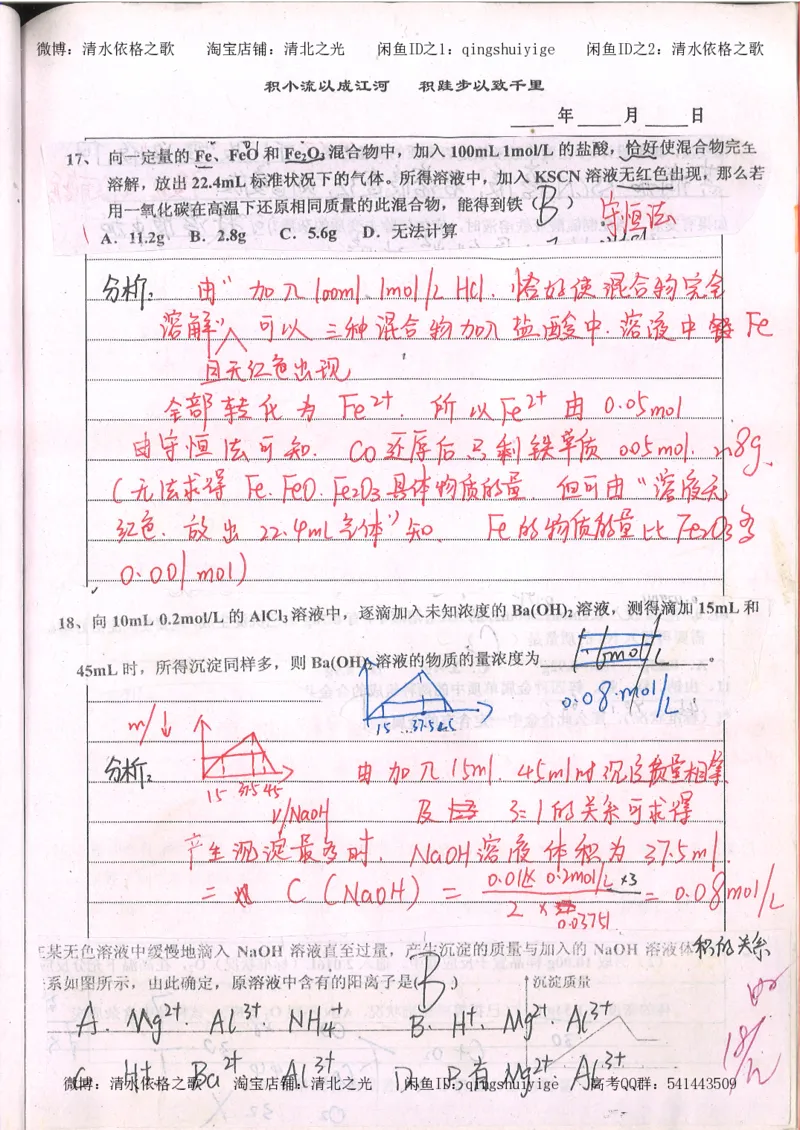 微博：清水依格之歌 淘宝店铺：清北之光 闲鱼ID之1：qingshuiyige 闲鱼ID之2：清水依格之歌
积小流以成江河 积跬步以致千里
年 月 日
17、向一定量的 Fe、FeO 和 Fe₂O₃ 混合物中，加入 100mL 1mol/L 的盐酸，恰好使混合物完全
溶解，放出 22.4mL 标准状况下的气体。所得溶液中，加入 KSCN 溶液无红色出现，那么若
用一氧化碳在高温下还原相同质量的此混合物，能得到铁（ B ） 守恒法
A．11.2g B．2.8g C．5.6g D．无法计算
分析： 由“加入100ml 1mol/L HCl．恰好使混合物完全
溶解”可以三种混合物加入盐酸中．溶液中 Fe
且无红色出现
全部转化为Fe²⁺．所以Fe²⁺由0.05mol
由守恒法可知．CO还原后马剩铁单质 0.05mol．2.8g．
（无法求得 Fe．FeO．Fe₂O₃具体物质的量．但可由“溶液无
红色．放出22.4mL气体”知．Fe的物质的量比Fe₂O₃多
0.001mol）
18、向 10mL 0.2mol/L 的 AlCl₃ 溶液中，逐滴加入未知浓度的 Ba(OH)₂ 溶液，测得滴加 15mL 和
45mL 时，所得沉淀同样多，则 Ba(OH)₂ 溶液的物质的量浓度为 。
0.08mol/L
15 37.5 45
m/↓
分析： 由加入15ml．45ml时沉淀质量相等
15 37.5 45
V/NaOH 及 3:1的关系可求得
产生沉淀最多时．NaOH溶液体积为37.5ml．
C（NaOH）= 0.01× 0.2mol/L ×3 = 0.08mol/L
2 × 0.0375l
某无色溶液中缓慢地滴入 NaOH 溶液直至过量，产生沉淀的质量与加入的 NaOH 溶液体积的关系
系如图所示，由此确定，原溶液中含有的阳离子是( B ) 沉淀质量
A．Mg²⁺．Al³⁺．NH₄⁺ B．H⁺．Mg²⁺．Al³⁺
C．H⁺．Ba²⁺．Al³⁺ D．只有Mg²⁺．Al³⁺
微博：清水依格之歌 淘宝店铺：清北之光 闲鱼ID：qingshuiyige 高考QQ群：541443509